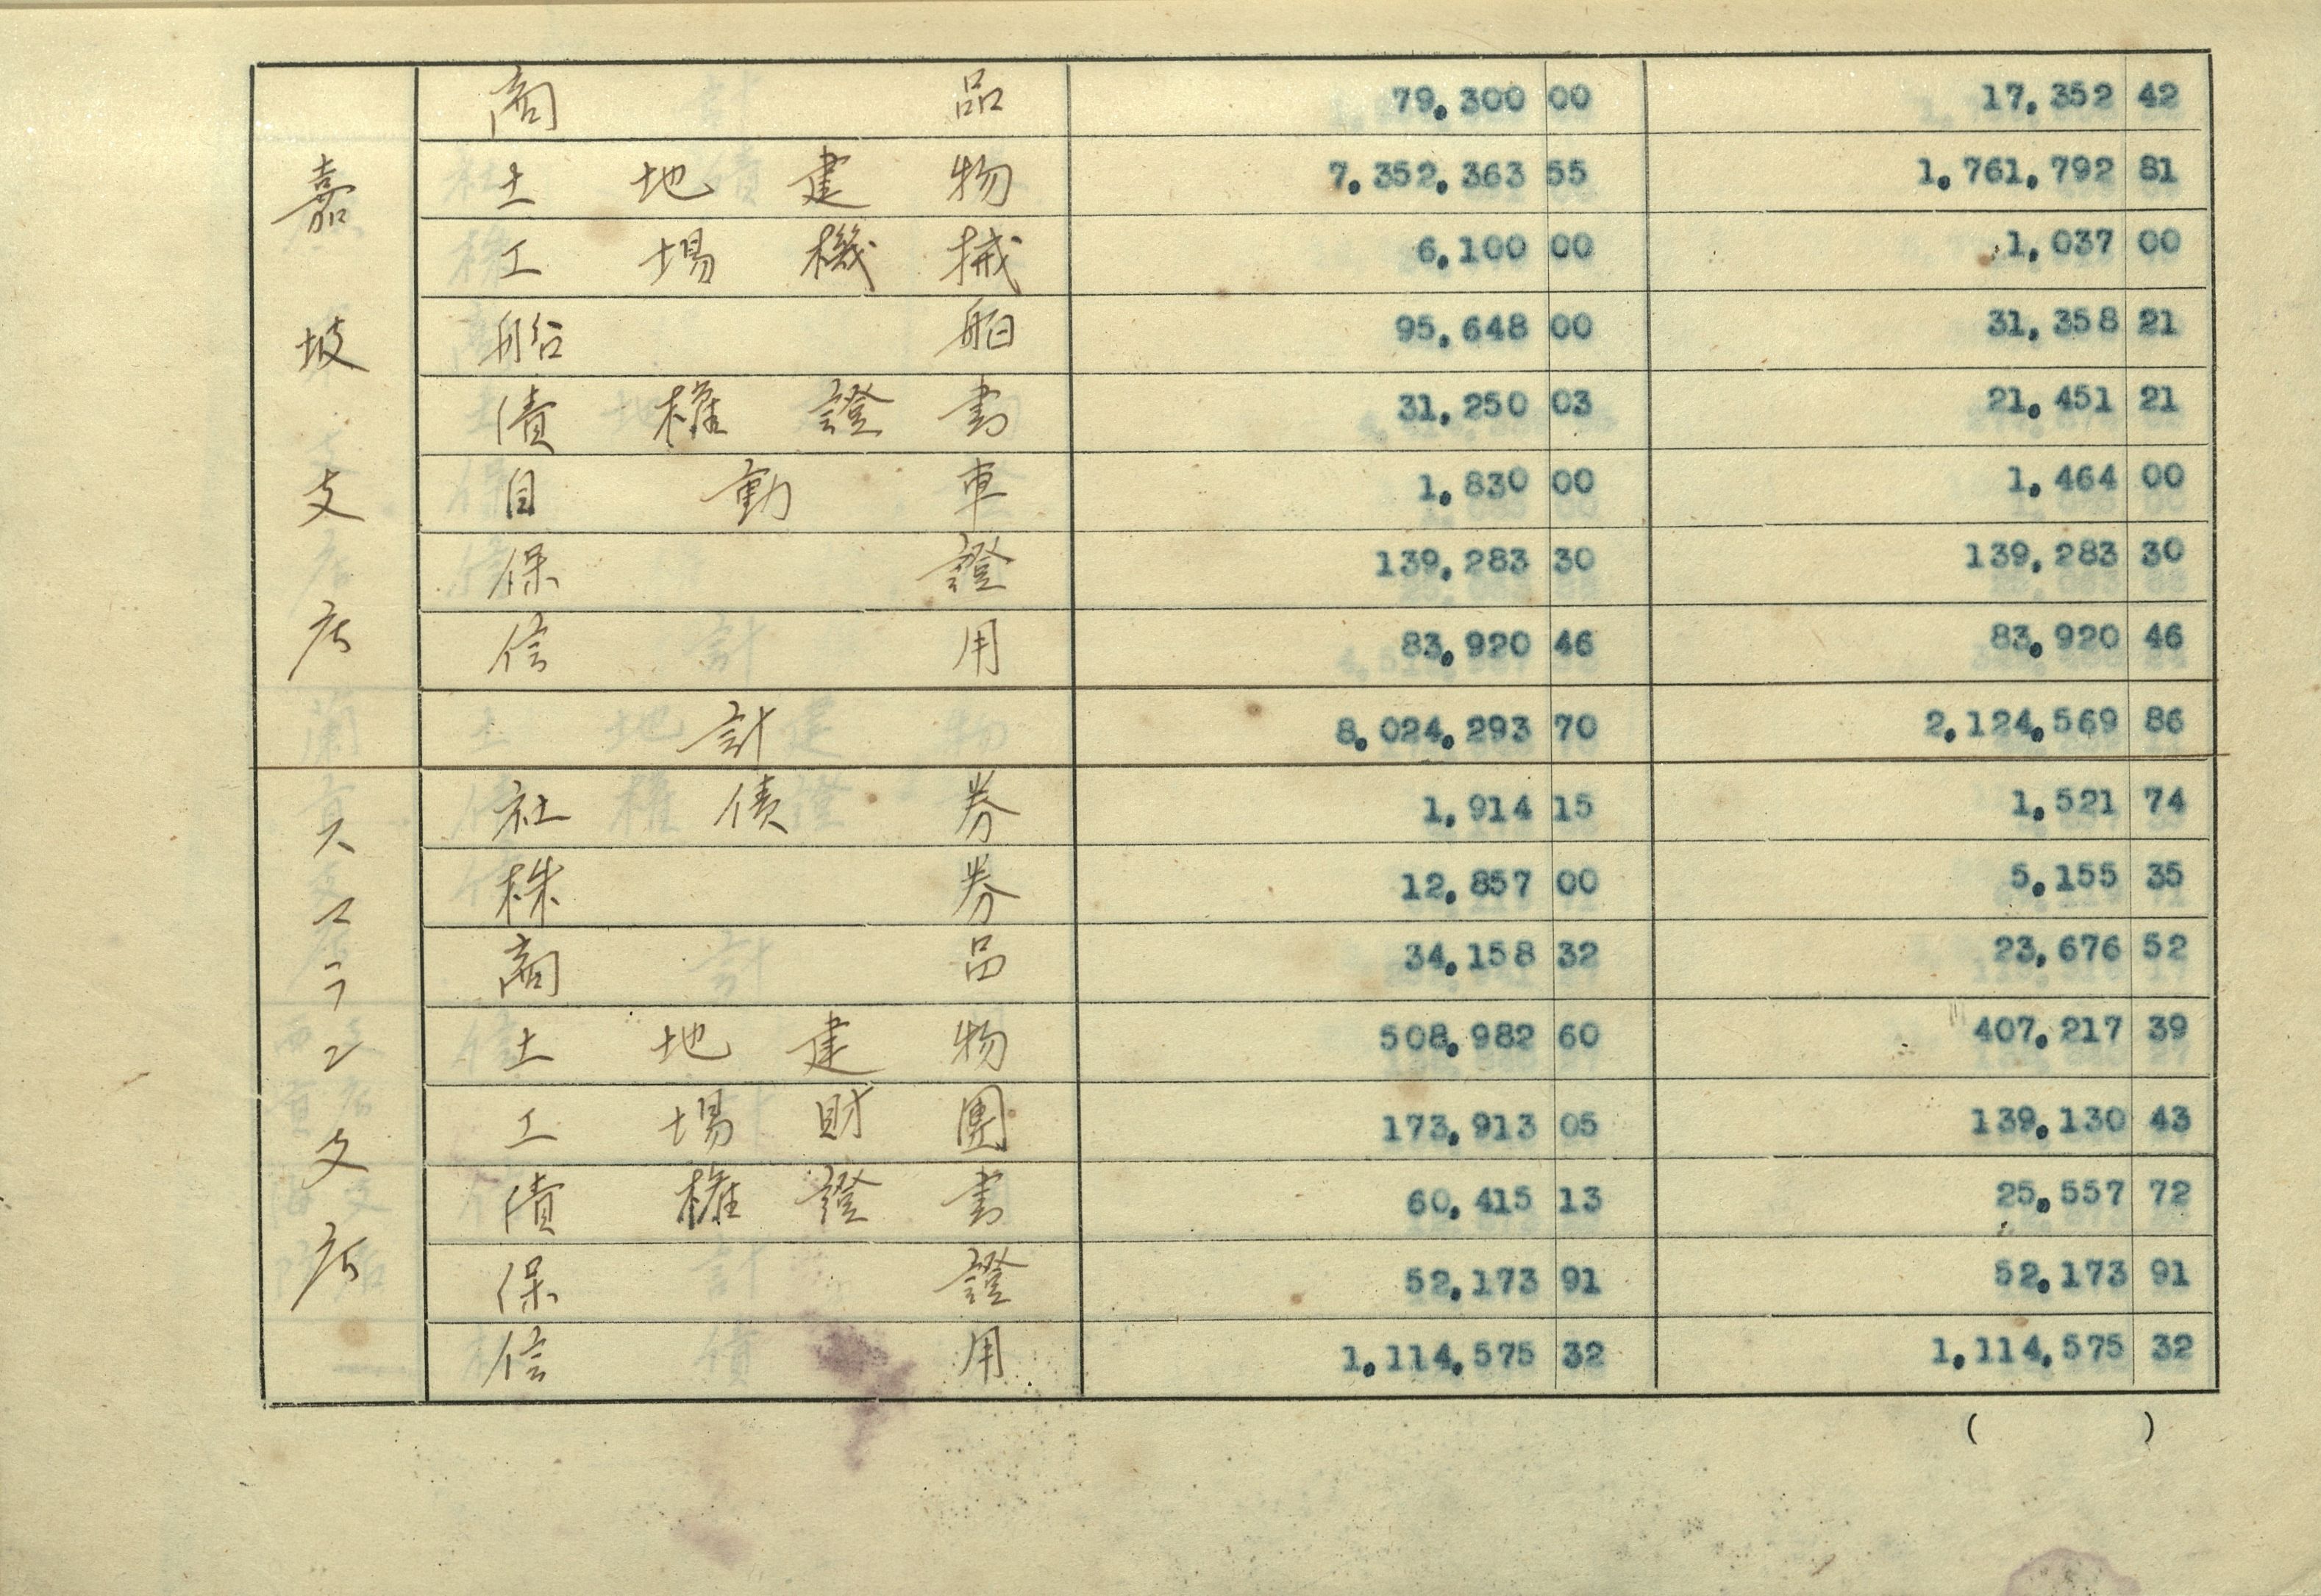 嘉坡支店
商品 79,300 00 17,352 42
土地建物 7,352,363 55 1,761,792 81
工場機械 6,100 00 1,037 00
船舶 95,648 00 31,358 21
債権證書 31,250 03 21,451 21
自動車 1,830 00 1,464 00
保證 139,283 30 139,283 30
信用 83,920 46 83,920 46
計 8,024,293 70 2,124,569 86
スマラン支店
社債券 1,914 15 1,521 74
株券 12,857 00 5,155 35
商品 34,158 32 23,676 52
土地建物 508,982 60 407,217 39
工場財團 173,913 05 139,130 43
債権證書 60,415 13 25,557 72
保證 52,173 91 52,173 91
信用 1,114,575 32 1,114,575 32
( )